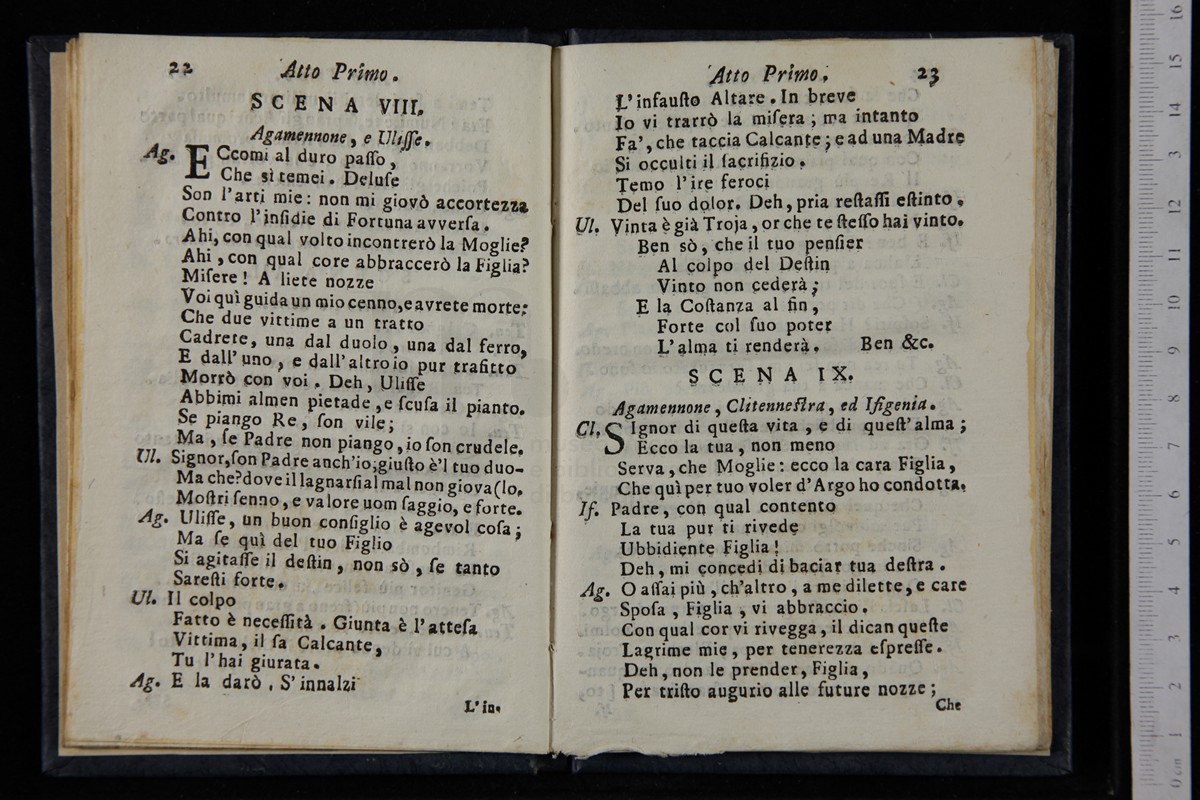 22 Atto Primo.
SCENA VIII.
Agamennone, e Ulisse.
Ag. ECcomi al duro passo,
Che sì temei. Deluse
Son l'arti mie: non mi giovò accortezza
Contro l'insidie di Fortuna avversa.
Ahi, con qual volto incontrerò la Moglie?
Ahi, con qual core abbraccerò la Figlia?
Misere! A liete nozze
Voi quì guida un mio cenno, e avrete morte:
Che due vittime a un tratto
Cadrete, una dal duolo, una dal ferro,
E dall' uno, e dall' altro io pur trafitto
Morrò con voi. Deh, Ulisse
Abbimi almen pietade, e scusa il pianto.
Se piango Re, son vile;
Ma, se Padre non piango, io son crudele.
Ul. Signor, son Padre anch'io; giusto è'l tuo duo-
Ma che? dove il lagnarsi al mal non giova (lo,
Mostri senno, e valore uom saggio, e forte.
Ag. Ulisse, un buon consiglio è agevol cosa;
Ma se quì del tuo Figlio
Si agitasse il destin, non sò, se tanto
Saresti forte.
Ul. Il colpo
Fatto è necessità. Giunta è l'attesa
Vittima, il sa Calcante,
Tu l'hai giurata.
Ag. E la darò. S'innalzi
L'in-
Atto Primo. 23
L'infausto Altare. In breve
Io vi trarrò la misera; ma intanto
Fa', che taccia Calcante; e ad una Madre
Si occulti il sacrifizio.
Temo l'ire feroci
Del suo dolor. Deh, pria restassi estinto.
Ul. Vinta è già Troja, or che te stesso hai vinto.
Ben sò, che il tuo pensier
Al colpo del Destin
Vinto non cederà;
E la Costanza al fin,
Forte col suo poter
L'alma ti renderà. Ben &c.
SCENA IX.
Agamennone, Clitennestra, ed Ifigenia.
Cl. SIgnor di questa vita, e di quest'alma;
Ecco la tua, non meno
Serva, che Moglie: ecco la cara Figlia,
Che quì per tuo voler d'Argo ho condotta.
If. Padre, con qual contento
La tua pur ti rivede
Ubbidiente Figlia!
Deh, mi concedi di baciar tua destra.
Ag. O assai più, ch'altro, a me dilette, e care
Sposa, Figlia, vi abbraccio.
Con qual cor vi rivegga, il dican queste
Lagrime mie, per tenerezza espresse.
Deh, non le prender, Figlia,
Per tristo augurio alle future nozze;
Che
0 cm 1 2 3 4 5 6 7 8 9 10 11 12 13 14 15 16